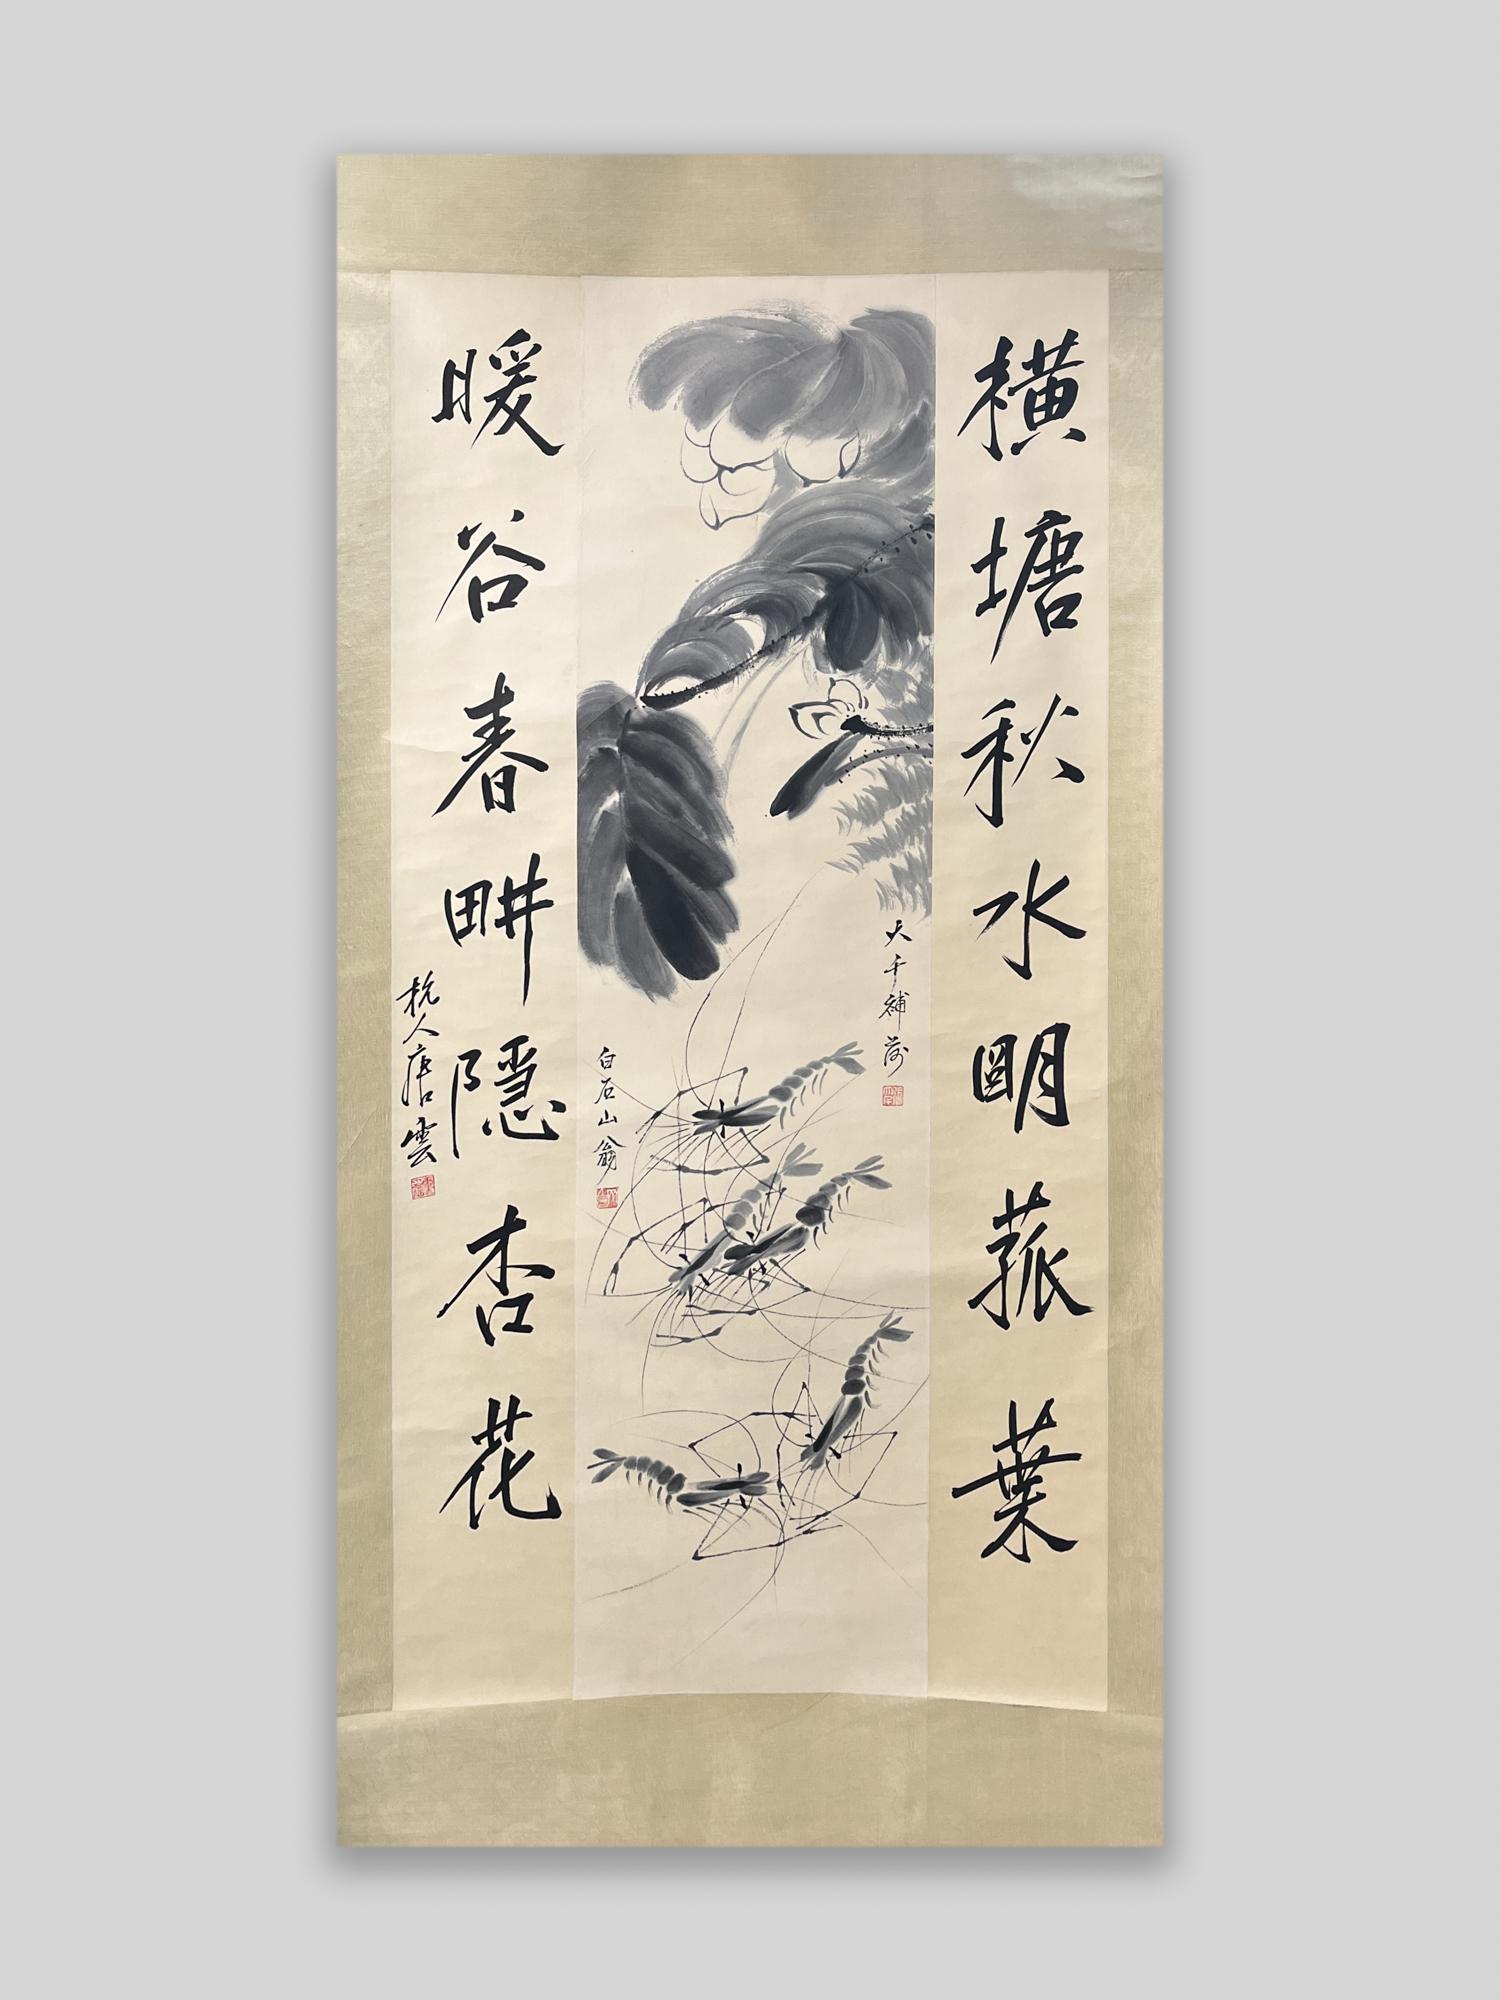 橫塘秋水明菰葉
大千補荷
白石山翁
暖谷春畊隱杏花
杭人唐雲